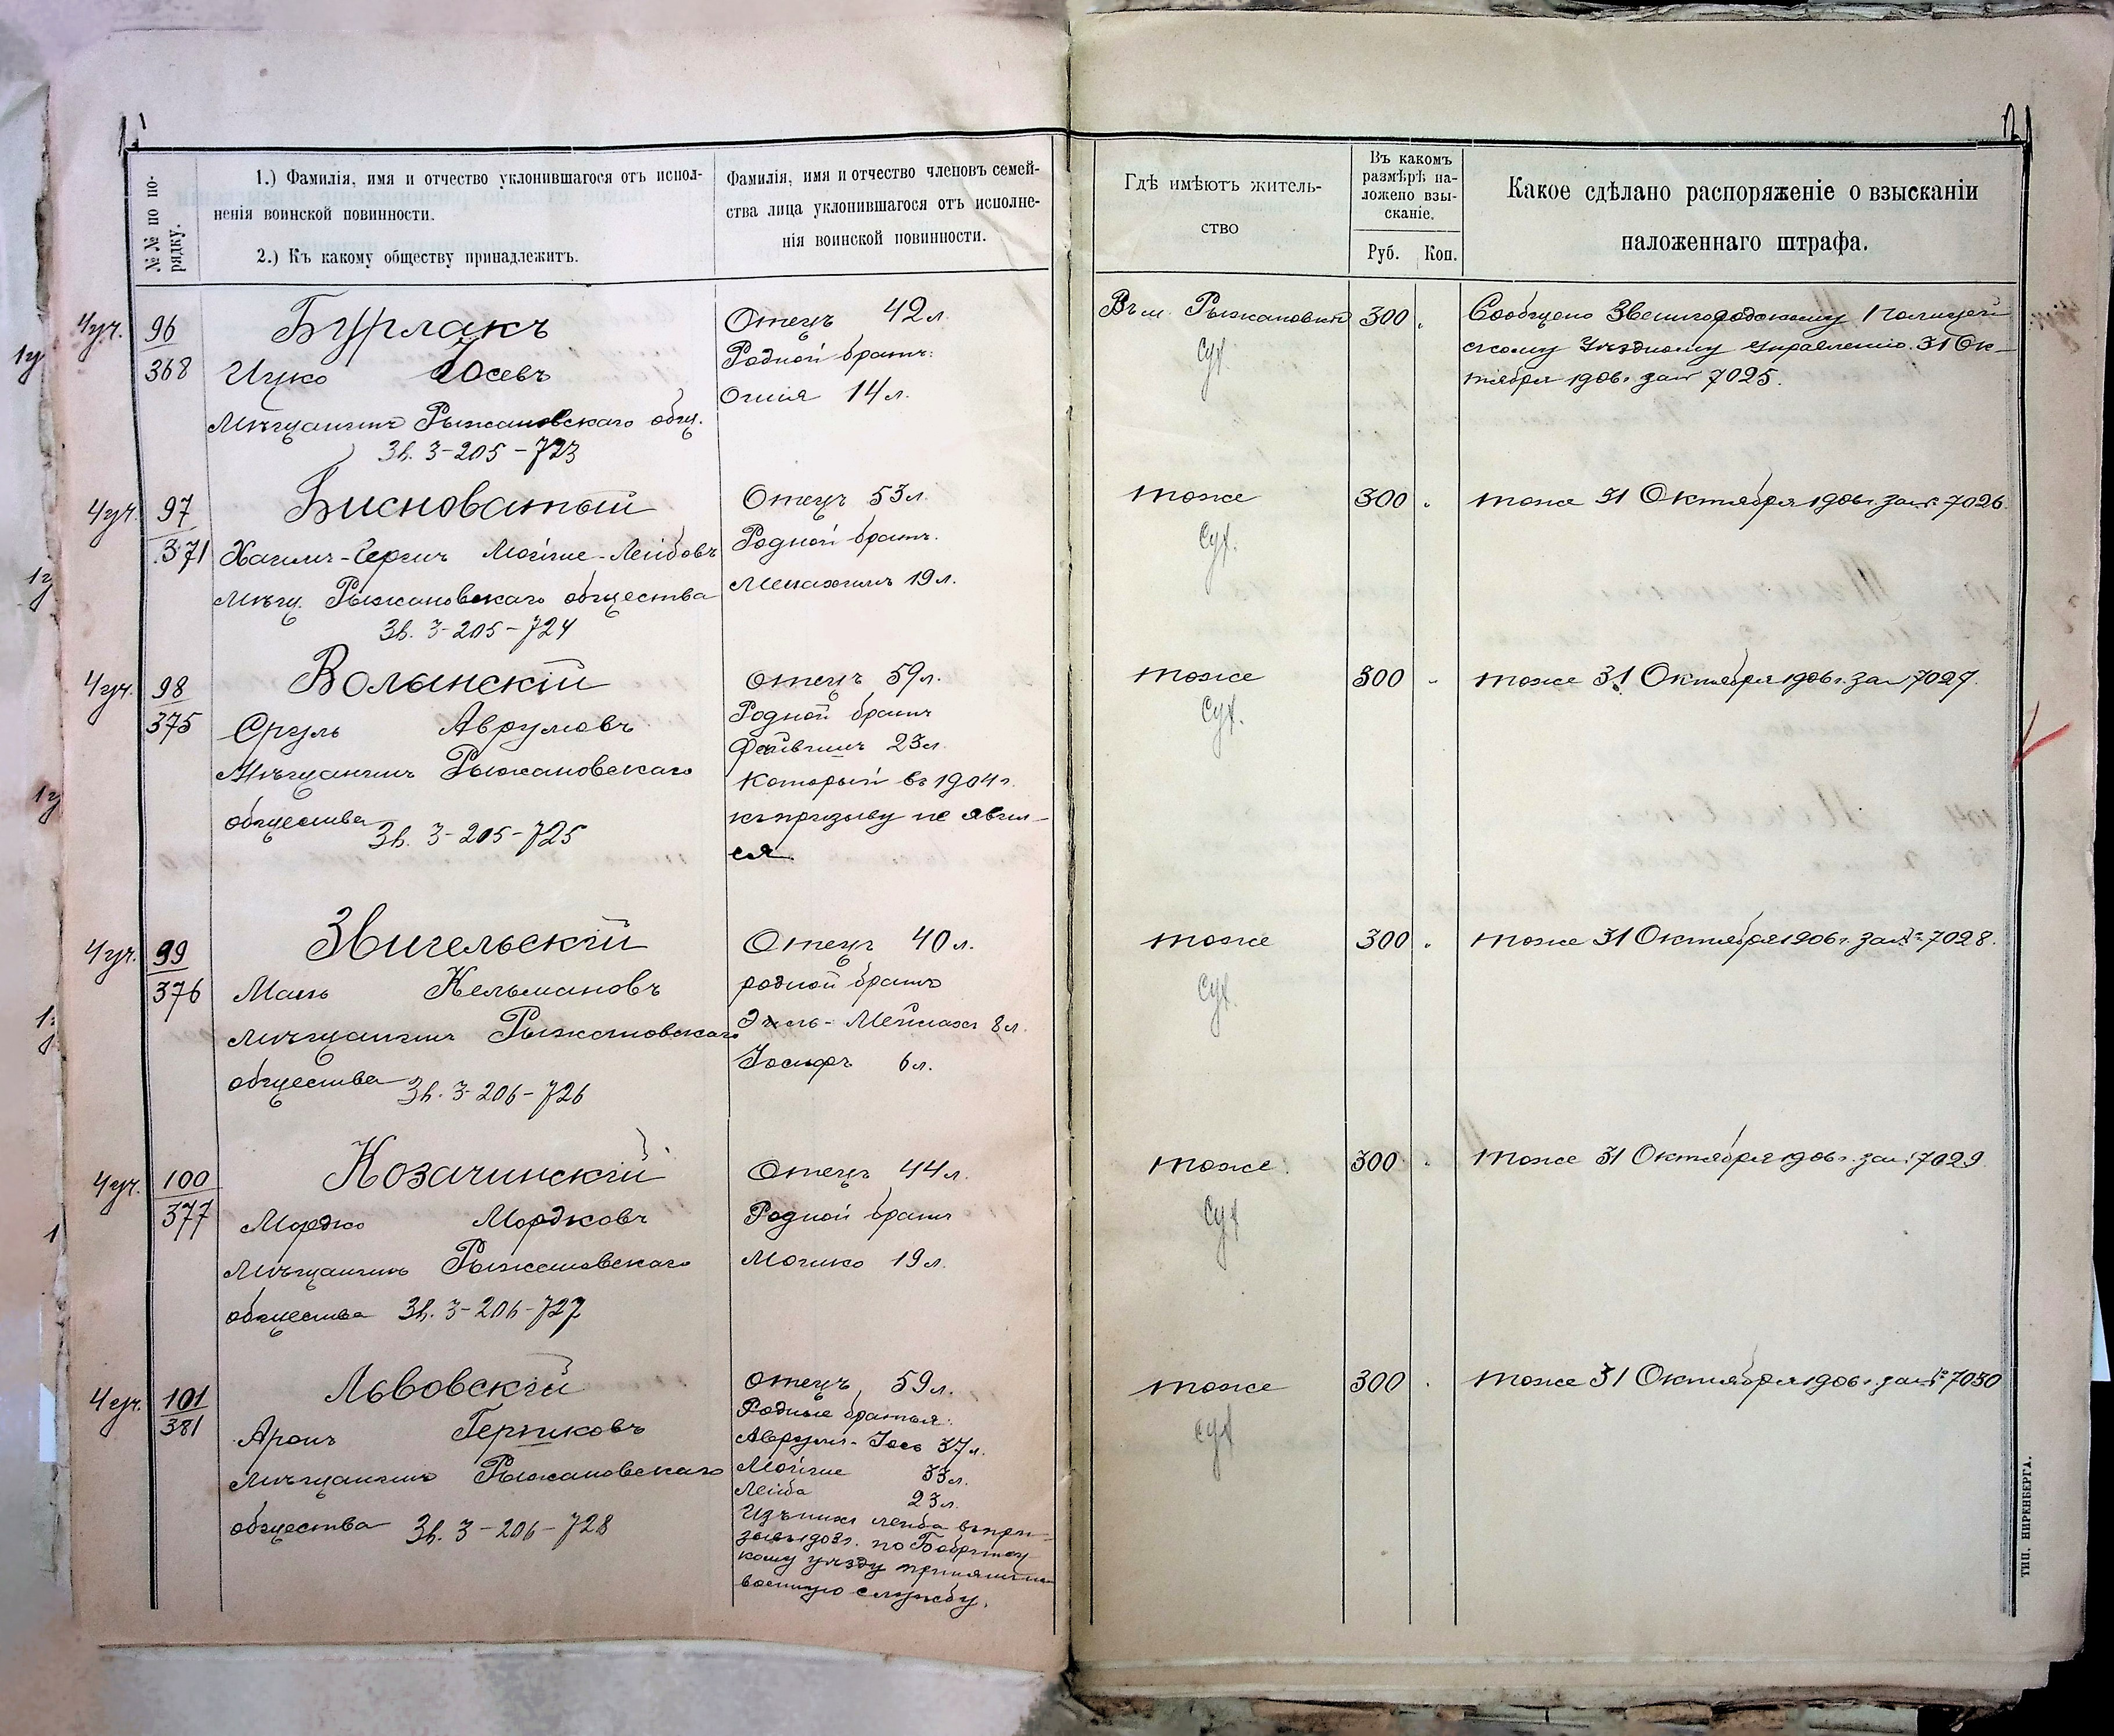 №№ по по-
рядку.
1.) Фамилія, имя и отчество уклонившагося отъ испол-
ненія воинской повинности.
2.) Къ какому обществу принадлежитъ.
Фамилія, имя и отчество членовъ семей-
ства лица уклонившагося отъ исполне-
нія воинской повинности.
Гдѣ имѣютъ житель-
ство
Въ какомъ
размѣрѣ на-
ложено взы-
сканіе.
Руб. Коп.
Какое сдѣлано распоряженіе о взысканіи
наложеннаго штрафа.
4 уч. 96
368
Бурлакъ
Ицко Іосевъ
Мѣщанинъ Рыжановскаго общ.
Зв. 3-205-723
Отецъ 42 л.
Родной братъ:
14 л.
Въ м. Рыжановкѣ
300
Сообщено Звенигородскому Полицей
скому Уѣздному Управленію 31 Ок-
тября 1906 г. за № 7025.
4 уч. 97
371
Бисноватый
Хаимъ-Герш Мойше-Лейбовъ
Мѣщ. Рыжановскаго общества
Зв. 3-205-724
Отецъ 53 л.
Родной братъ.
Менахимъ 19 л.
тоже
300
тоже 31 Октября 1906 г. за № 7026.
4 уч. 98
375
Волынскій
Сруль Аврумовъ
Мѣщанинъ Рыжановскаго
общества
Зв. 3-205-725
Отецъ 59 л.
Родной братъ
Файвишъ 23 л.
который въ 1904 г.
къ призыву не явил-
ся.
тоже
300
тоже 31 Октября 1906 г. за № 7027.
4 уч. 99
376
Звигельскій
Кельмановъ
мѣщанинъ Рыжановскаго
общества
Зв. 3-206-726
Отецъ 40 л.
родной братъ
8 л.
Іосифъ 6 л.
тоже
300
тоже 31 Октября 1906 г. за № 7028.
4 уч. 100
377
Козачинскій
Мордко Мордковъ
мѣщанинъ Рыжановскаго
общества Зв. 3-206-727
Отецъ 44 л.
Родной братъ
Мошко 19 л.
тоже.
300
тоже 31 Октября 1906 г. за № 7029.
4 уч. 101
381
Львовскій
Аронъ Гершковъ
мѣщанинъ Рыжановскаго
общества Зв. 3-206-728
Отецъ 59 л.
Родные братья:
Аврумъ-Іось 37 л.
Мойше 33 л.
Лейба 23 л.
Изъ нихъ Лейба въ при-
зывъ г. по
кому уѣзду принятъ на
военную службу.
тоже
300
тоже 31 Октября 1906 г. за № 7030
ТИП. НИРЕНБЕРГА.